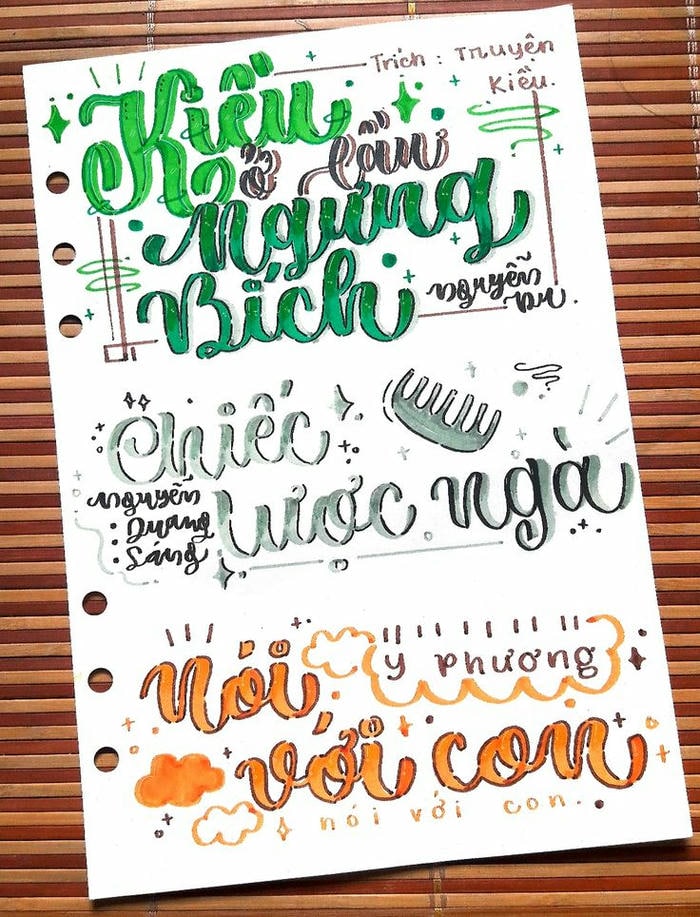 Kiều
Trích : Truyện
Kiều.
ở lầu
Ngưng
Bích
Nguyễn
Du.
Chiếc
lược ngà
Nguyễn
• Quang
• Sáng
Nói
Y Phương
với con
nói với con.